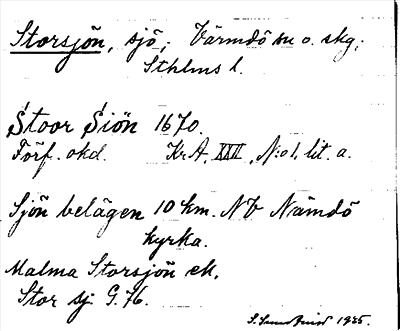 Storsjön, sjö; Värmdö sn o. skg;
Sthlms l.
Stoor Siön 1670.
Förf. okd. KrA, XXII, N:o 1, lit. a.
Sjön belägen 10 km. NV Nämdö
kyrka.
Malma Storsjön ek.
Stor sj. G. 76.
1935.